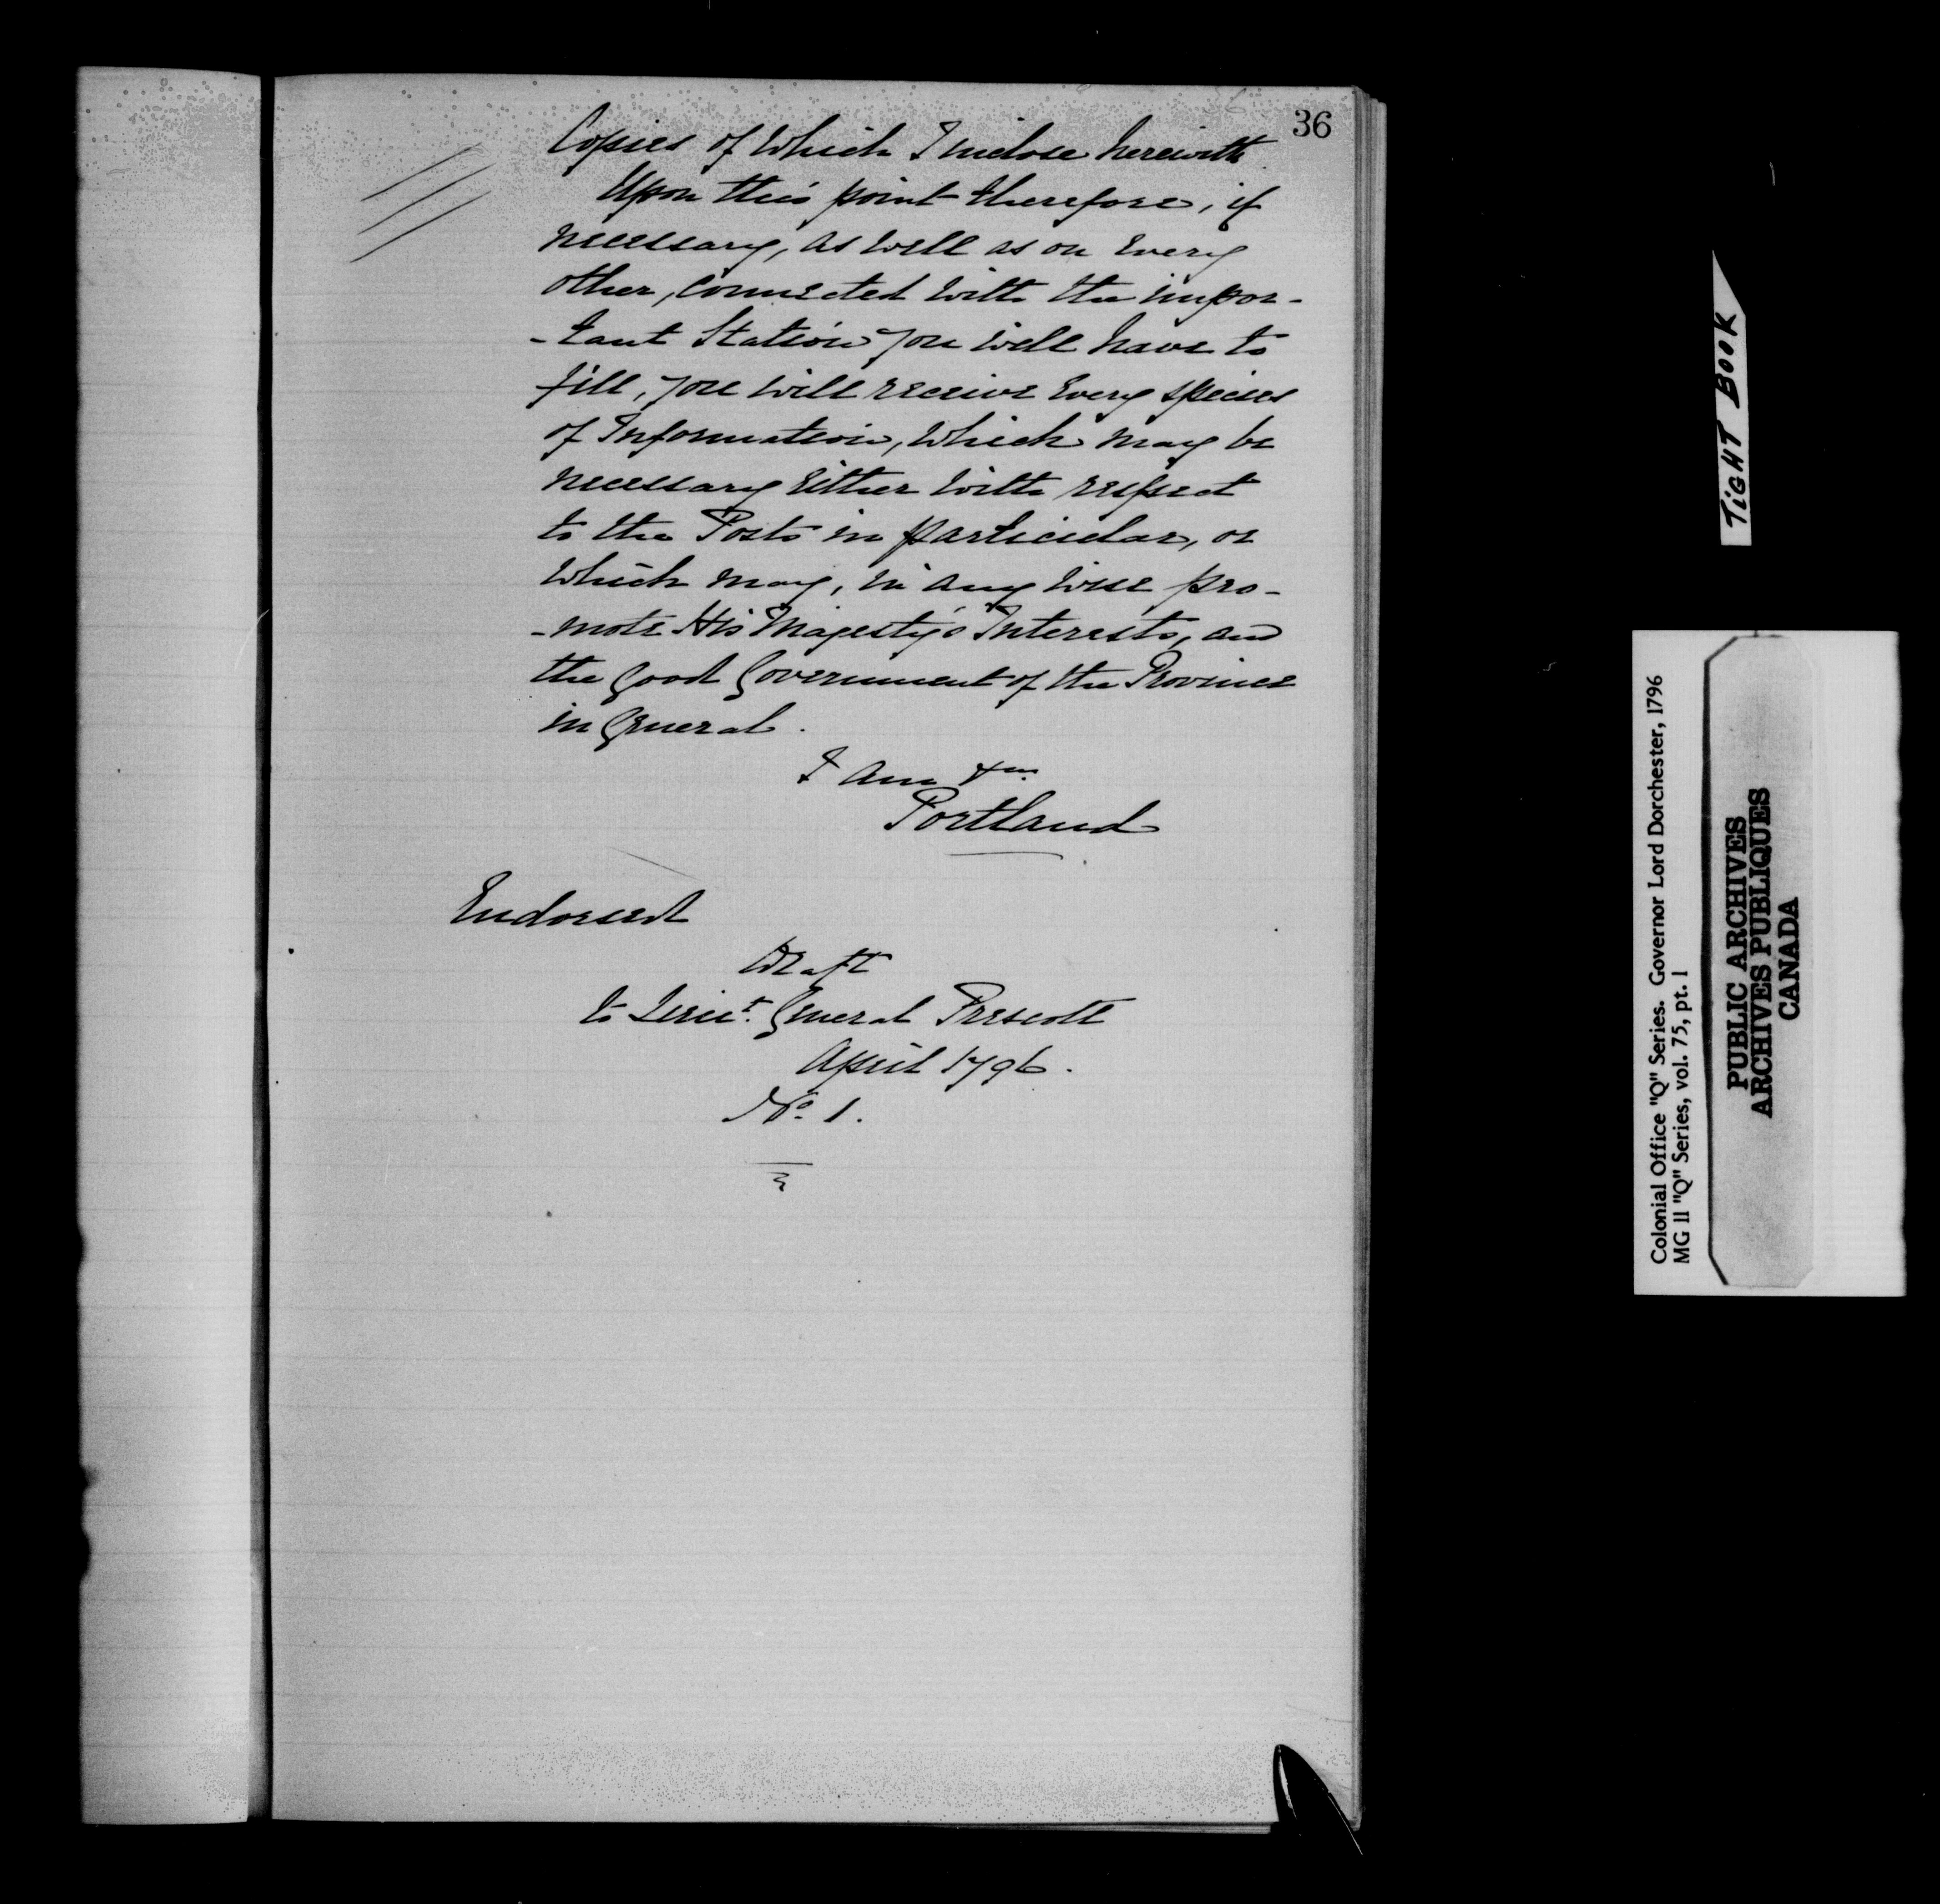 36
Copies of Which I inclose herewith
Upon this point therefore, if
necessary, as well as on Every
other, Connected with the impor-
-tant Station you will have to
fill, you will receive Every species
of Information, Which may be
necessary Either with respect
to the Posts in particular, or
which may, in any wise pro-
-mote His Majesty's Interests, and
the good Government of the Province
in General.
I am &ca
Portland
Endorsed
Draft
to Lieut. General Prescott
April 1796.
No. 1.
TIGHT BOOK
Colonial Office "Q" Series. Governor Lord Dorchester, 1796
MG 11 "Q" Series, vol. 75, pt. 1
PUBLIC ARCHIVES
ARCHIVES PUBLIQUES
CANADA